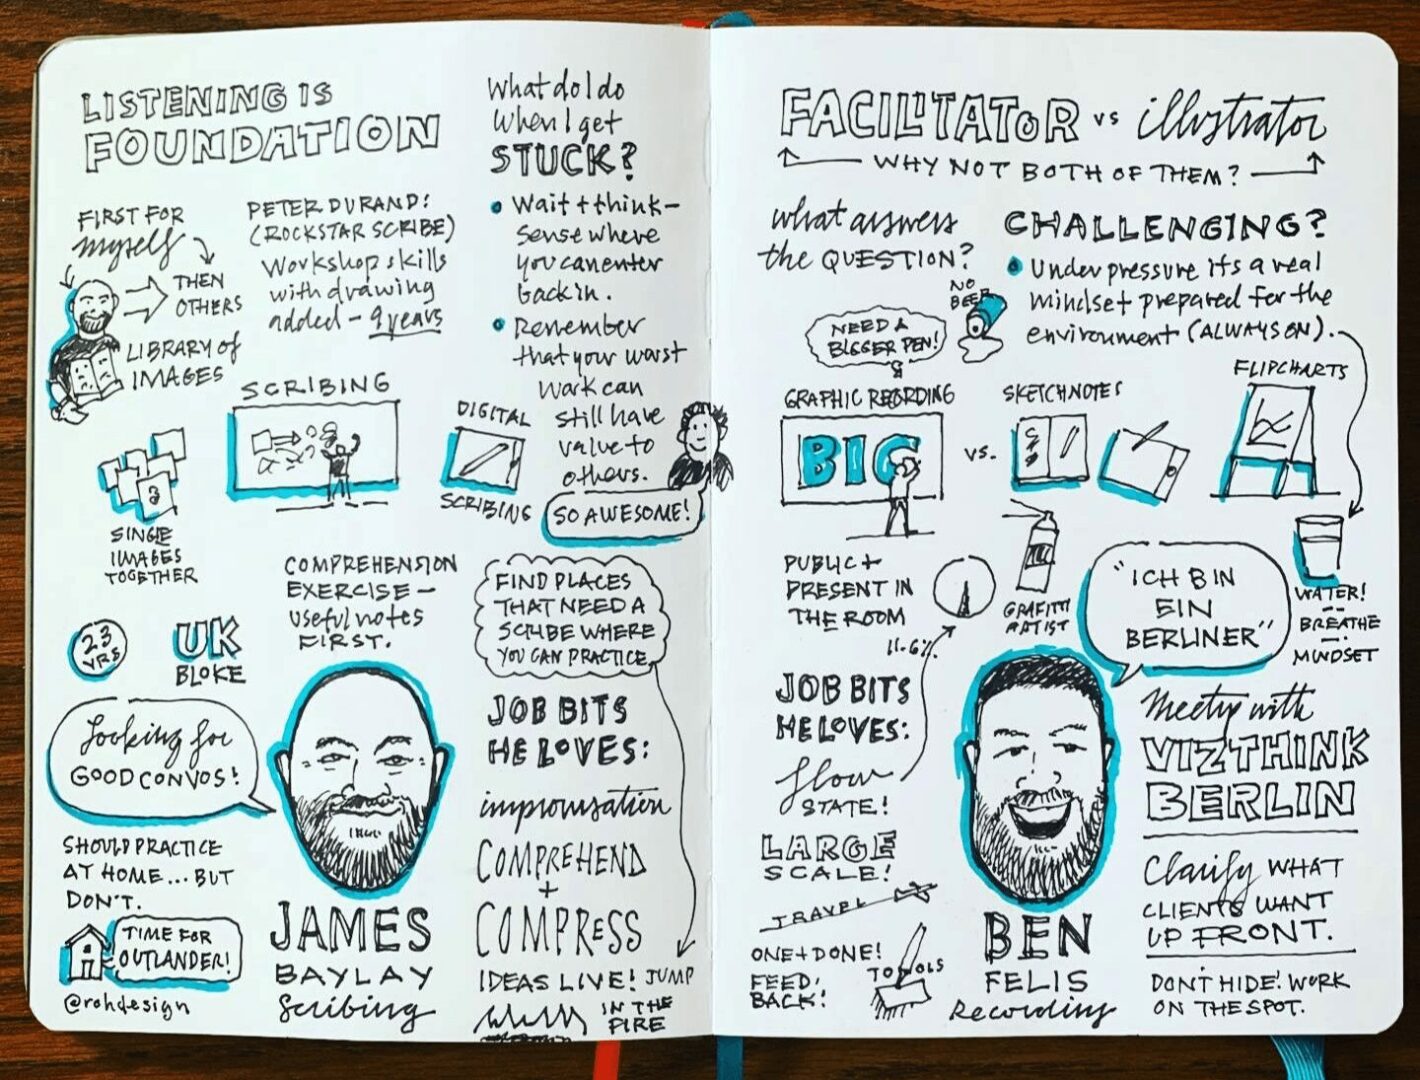 LISTENING IS
FOUNDATION
FIRST FOR
myself
THEN
OTHERS
LIBRARY of
IMAGES
PETER DURAND:
(ROCKSTAR SCRIBE)
Workshop skills
with drawing
added – 9 years
SCRIBING
DIGITAL
SCRIBING
SINGLE
IMAGES
TOGETHER
What do I do
when I get
STUCK?
• Wait + think –
sense where
you can enter
back in.
• Remember
that your worst
work can
still have
value to
others.
SO AWESOME!
COMPREHENSION
EXERCISE –
useful notes
FIRST.
FIND PLACES
THAT NEED A
SCRIBE WHERE
YOU CAN PRACTICE
23
YRS
UK
BLOKE
Looking for
GOOD CONVOS!
SHOULD PRACTICE
AT HOME... BUT
DON'T.
TIME FOR
OUTLANDER!
@rohdesign
JAMES
BAYLAY
Scribing
JOB BITS
HE LOVES:
improvisation
COMPREHEND
+
COMPRESS
IDEAS LIVE!
JUMP
IN THE
FIRE
FACILITATOR vs illustrator
WHY NOT BOTH OF THEM?
what answers
the QUESTION?
NO
BEER
NEED A
BIGGER PEN!
GRAPHIC RECORDING
BIG
vs.
SKETCHNOTES
FLIPCHARTS
CHALLENGING?
• Under pressure its a real
mindset prepared for the
environment (ALWAYS ON).
PUBLIC +
PRESENT IN
THE ROOM
11-6%
GRAFITTI
ARTIST
"ICH BIN
EIN
BERLINER"
WATER!
BREATHE
MINDSET
JOB BITS
HE LOVES:
flow
STATE!
LARGE
SCALE!
TRAVEL
ONE + DONE!
FEED.
BACK!
TOOLS
BEN
FELIS
Recording
Meetup with
VIZTHINK
BERLIN
Clarify WHAT
CLIENTS WANT
UP FRONT.
DON'T HIDE! WORK
ON THE SPOT.